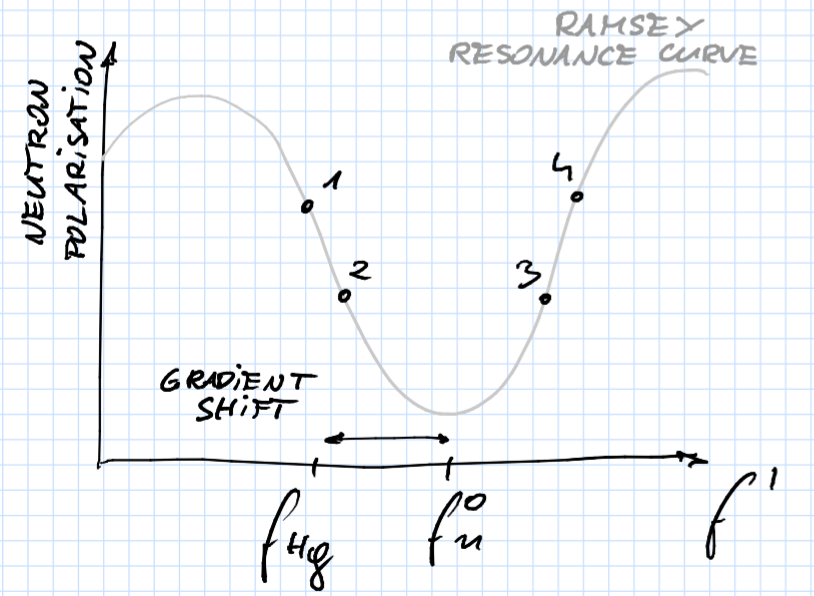 RAMSEY
RESONANCE CURVE
NEUTRON
POLARiSATiON
1
2
3
4
GRADiENT
SHiFT
f Hg
f n 0
f '